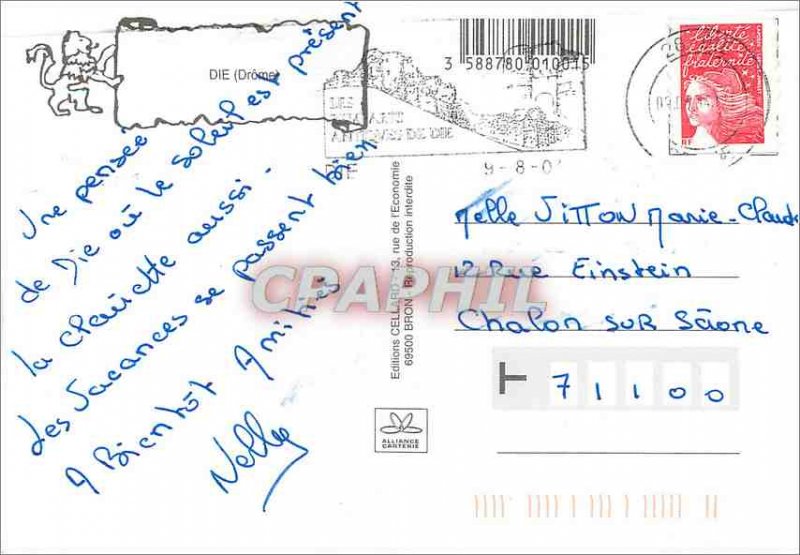 DIE (Drôme)
3 588780 010015
liberté
égalité
fraternité
RF
9-8-0
Une pensée
de Die où le soleil est présent
la clairette aussi.
Les Vacances se passent bien
A Bientôt Amitiés
Nelly
Editions CELLARD - 13, rue de l'Economie
69500 BRON - Reproduction interdite
ALLIANCE
CARTERIE
CPARPHIL
Melle JITTON Marie-Claude
12 Rue Einstein
Chalon sur Sâone
71100